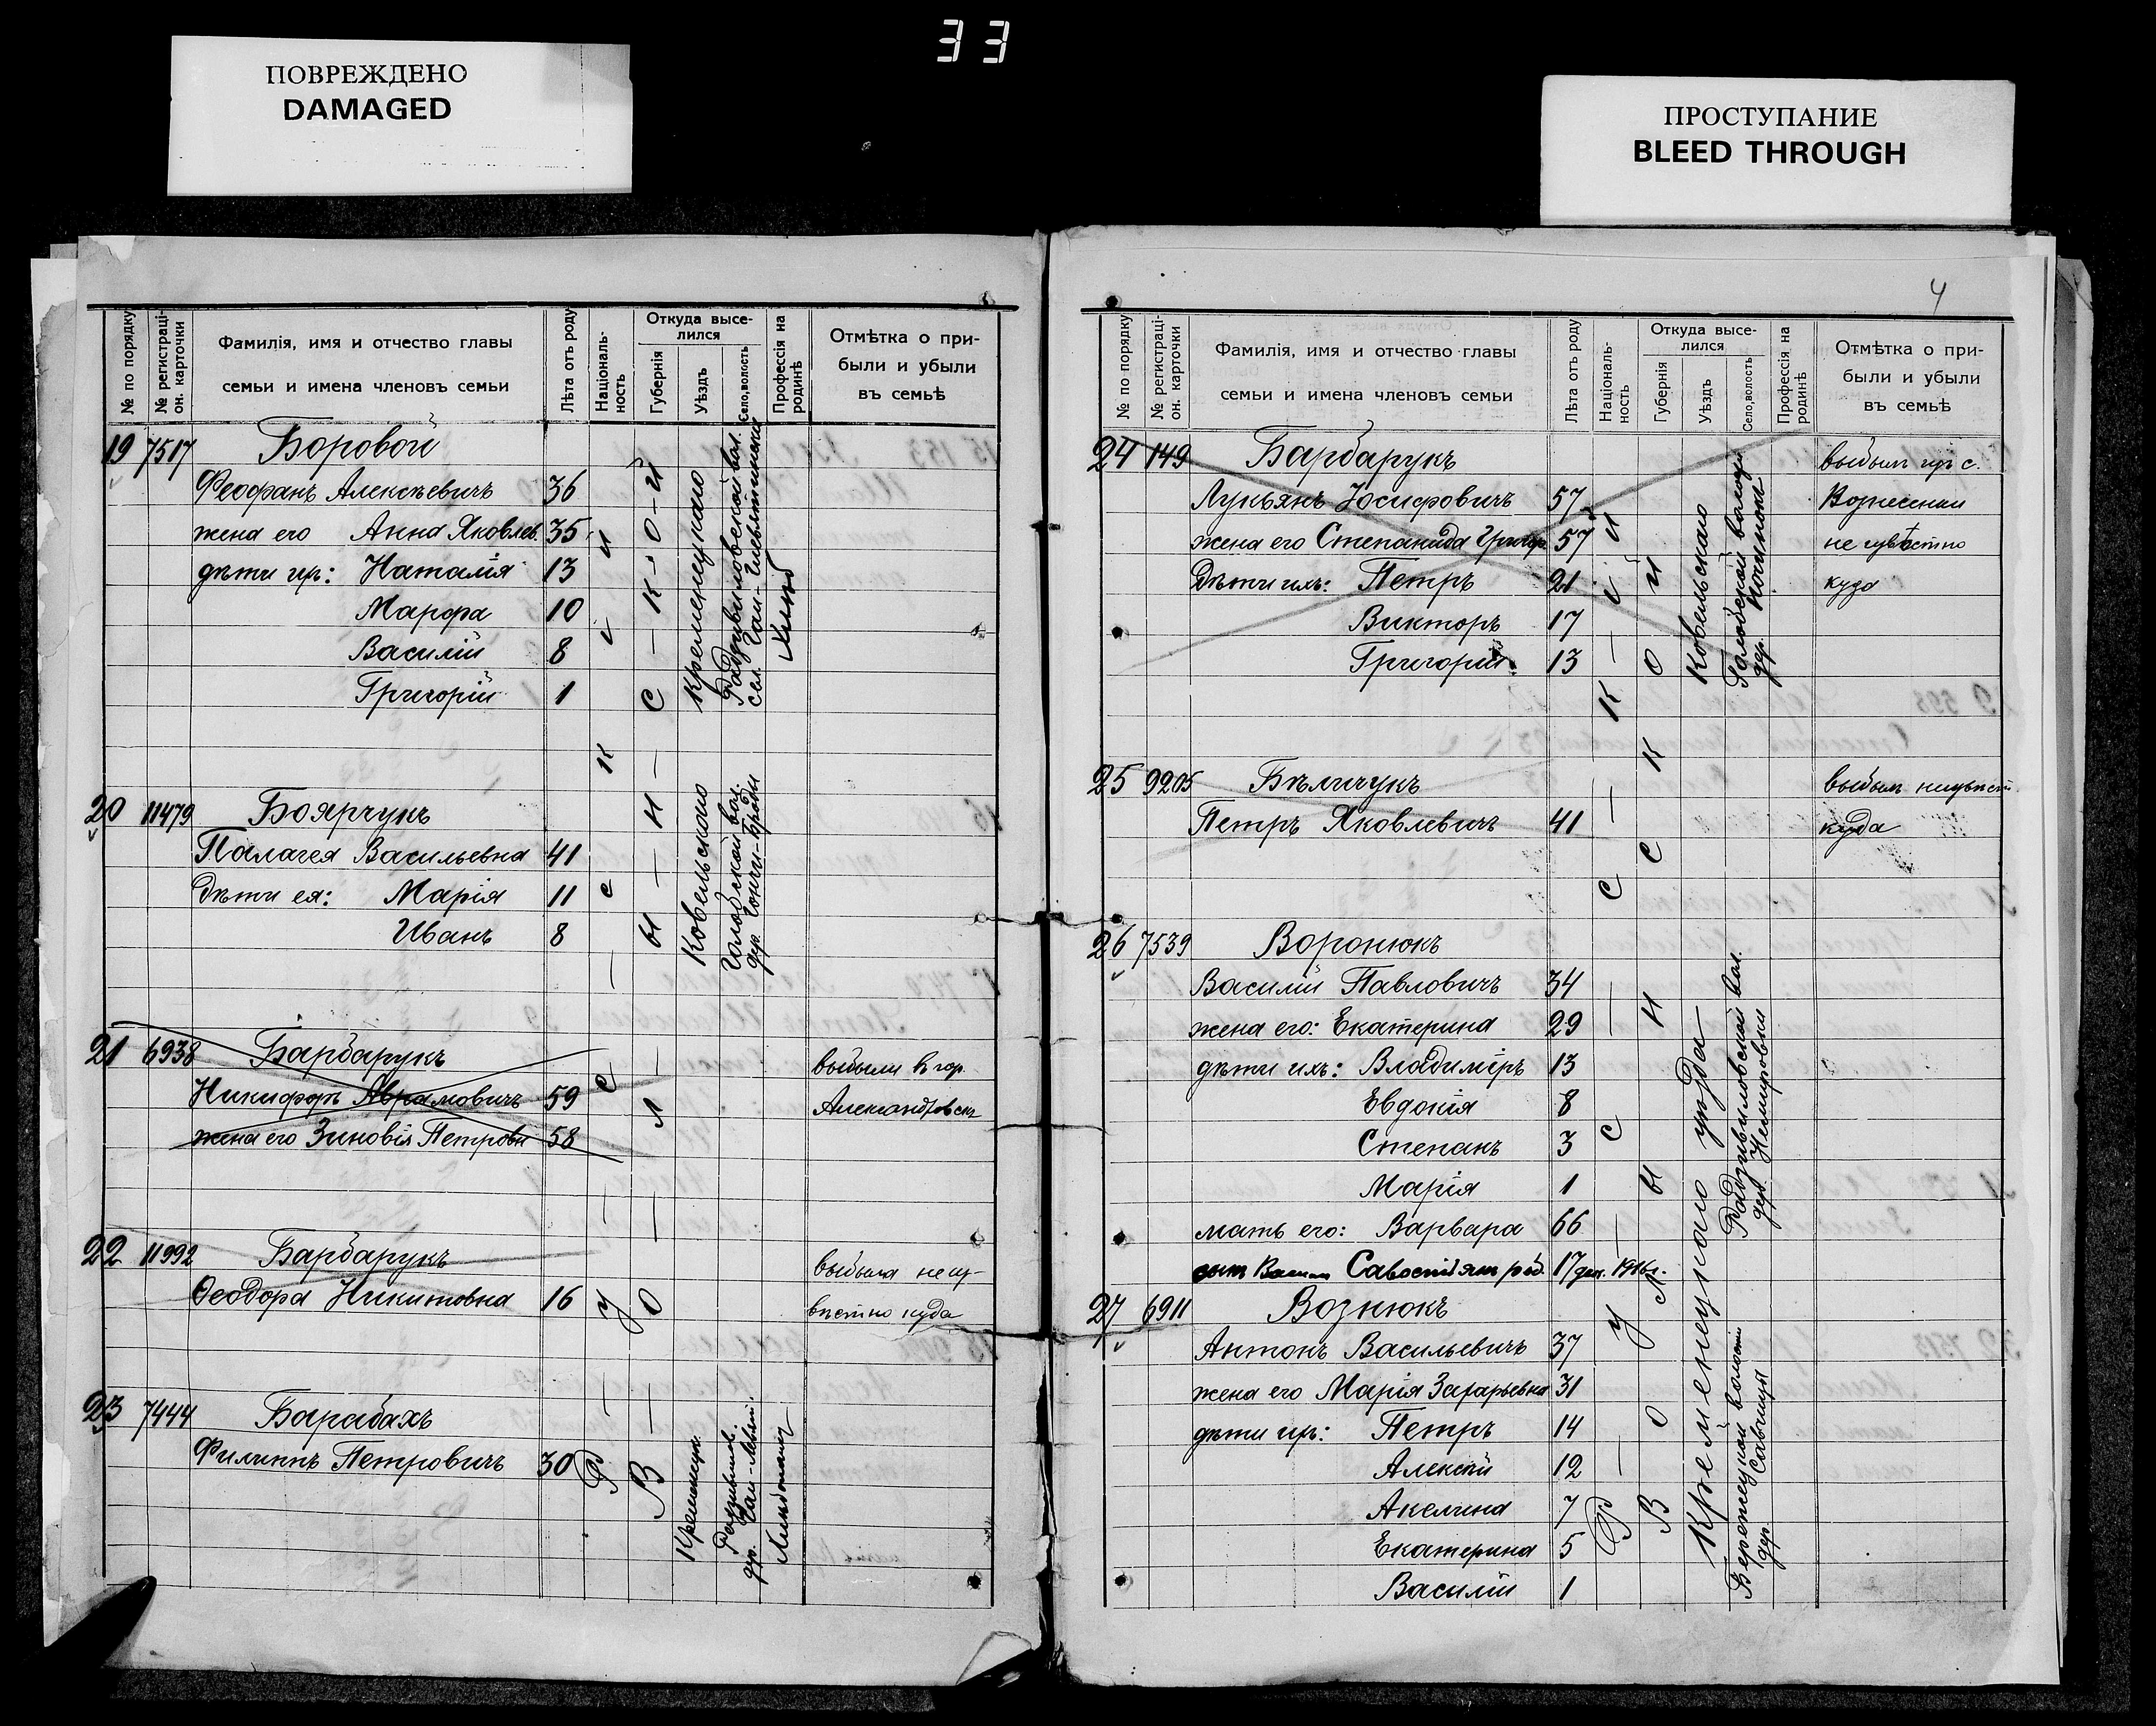 33
ПОВРЕЖДЕНО
DAMAGED
ПРОСТУПАНИЕ
BLEED THROUGH
№ по порядку
№ регистраці-
он. карточки
Фамилія, имя и отчество главы
семьи и имена членовъ семьи
Лѣта отъ роду
Націоналъ-
ность
Откуда высе-
лился
Губернія
Уѣздъ
Село,волость
Профессія на
родинѣ
Отмѣтка о при-
были и убыли
въ семьѣ
19 7517 Боровой
Феофанъ Алексѣевичъ 36
жена его Анна Яковлев. 35
дѣти ихъ: Наталія 13
Марфа 10
Василій 8
Григорій 1
Кременецкаго
Радзивиловской вол.
20 11479 Боярчукъ
Палагея Васильевна 41
дѣти ея: Марія 11
Иванъ 8
Ковельскаго
Голобской вол.
21 6938 Барбарукъ выбыли въ гор.
Никифоръ Аврамовичъ 59 Александровскъ
жена его Зиновія Петровн 58
22 11992 Барбарукъ выбыла неиз-
Феодора Никитовна 16 вѣстно куда
23 7444 Барабахъ
Филиппъ Петровичъ 30
Кременецк.
Радзивилов.
Р — У — С — К — І — И
В — О — Л — Ы — Н — С — К — О — Й
4
№ по порядку
№ регистраці-
он. карточки
Фамилія, имя и отчество главы
семьи и имена членовъ семьи
Лѣта отъ роду
Националь-
ность
Откуда высе-
лился
Губернія
Уѣздъ
Село,волость
Профессія на
родинѣ
Отмѣтка о при-
были и убыли
въ семьѣ
24 149 Барбарукъ выбылъ изъ с.
Лукьянъ Іосифовичъ 57 Вознесенки
жена его Степанида Григор. 57 не извѣстно
Дѣти ихъ: Петръ 21 куда
Викторъ 17
Григорій 13
Ковельскаго
Голобской волости
25 9205 Бѣличукъ выбылъ неизвѣст.
Петръ Яковлевичъ 41 куда
26 7539 Воронюкъ
Василій Павловичъ 34
жена его: Екатерина 29
дѣти ихъ: Владиміръ 13
Евдокія 8
Степанъ 3
Марія 1
мать его: Варвара 66
сынъ Савостіянъ род. 17 дек. 1916г.
Радзивиловской вол.
дер. Немировки
27 6911 Вознюкъ
Антонъ Васильевичъ 37
жена его Марія Захарьевна 31
дѣти ихъ: Петръ 14
Алексѣй 12
Акелина 7
Екатерина 5
Василій 1
Кременецкаго уѣзда
Бережецкой волости
дер. Савчицы
Р — У — С — К — І — Й
В О Л Ы Н С К О Й